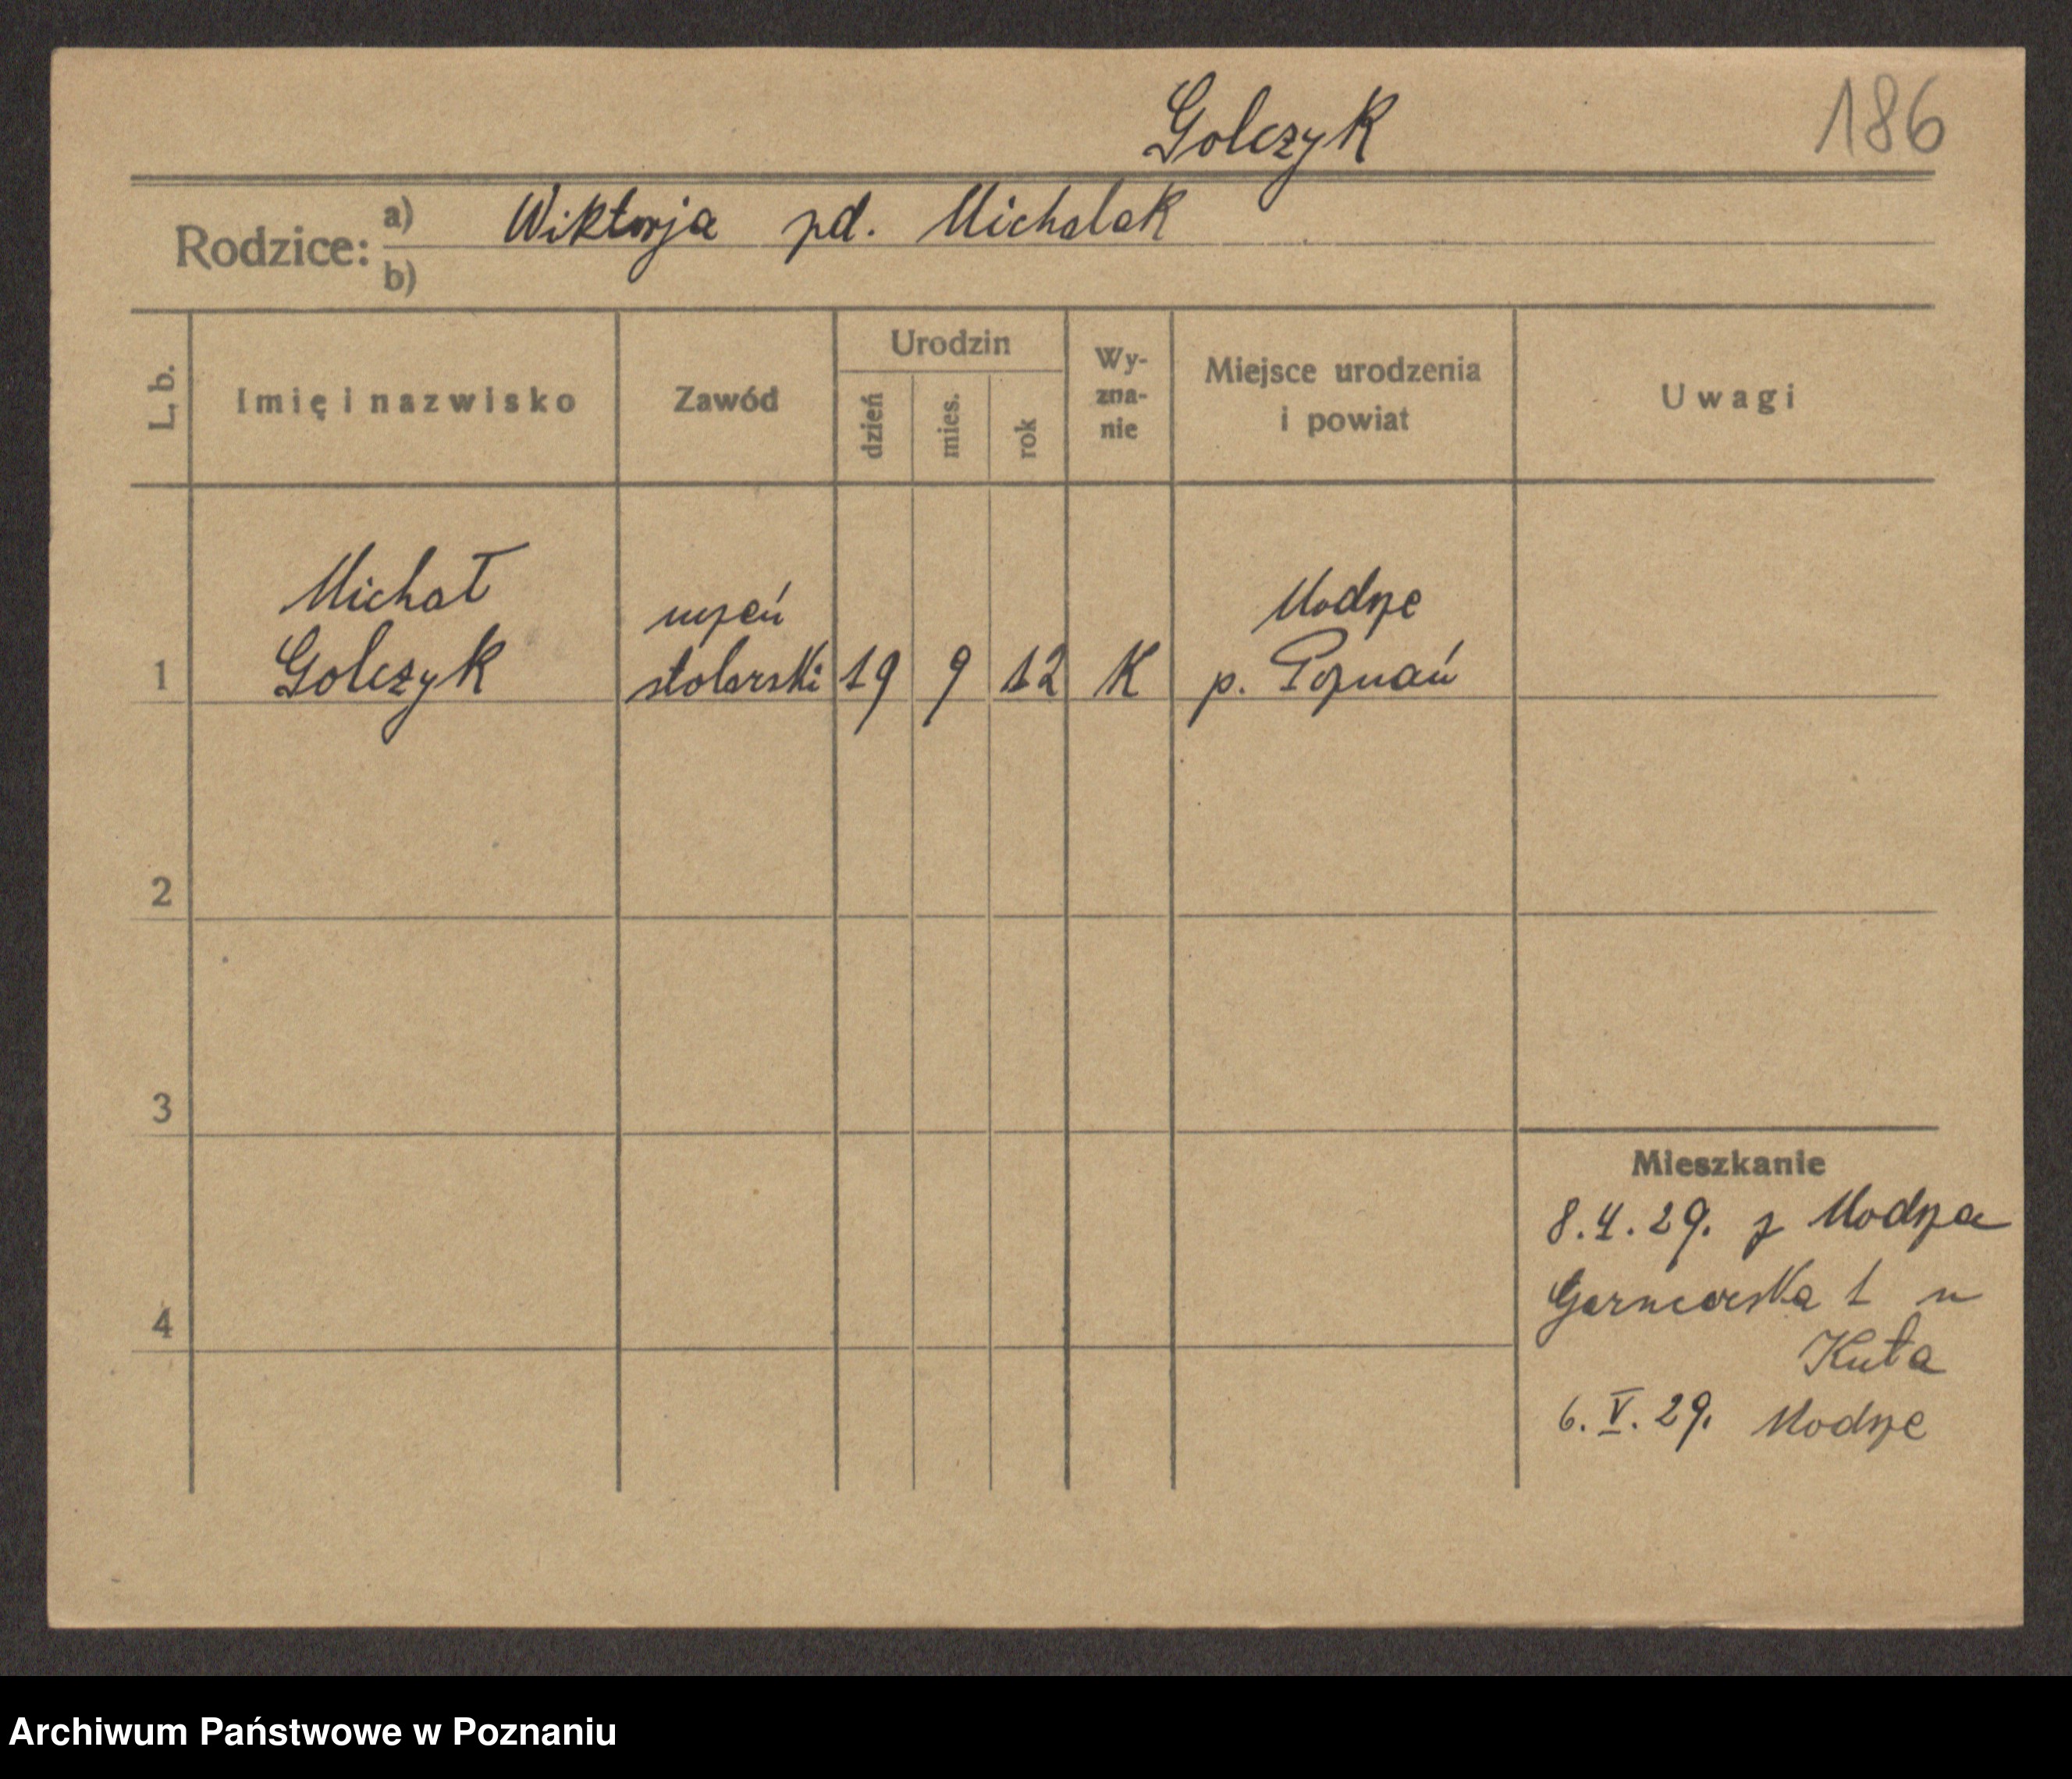 Golczyk
186
Rodzice:
a) Wiktorja zd. Michalak
b)
L. b.
Imię i nazwisko
Zawód
Urodzin
dzień
mies.
rok
Wy-
zna-
nie
Miejsce urodzenia
i powiat
Uwagi
Michał
Golczyk
uczeń
stolarski
1
19
9
12
K
Modrze
p. Poznań
2
3
4
Mieszkanie
8. 4. 29. z Modrza
Garncarska 1 u
Kuta
6. V. 29. Modrze
Archiwum Państwowe w Poznaniu